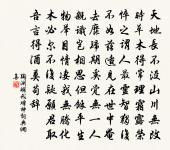 天地長不沒山川無改
時草木得常理霜露榮
悴之謂人最靈智獨復
不如茲適見在世中奄
去靡歸期奚覺無一人
親識豈相思但餘平生
物舉目情悽洏我無騰化
術必爾不復疑願君取
吾言得酒莫苟辭